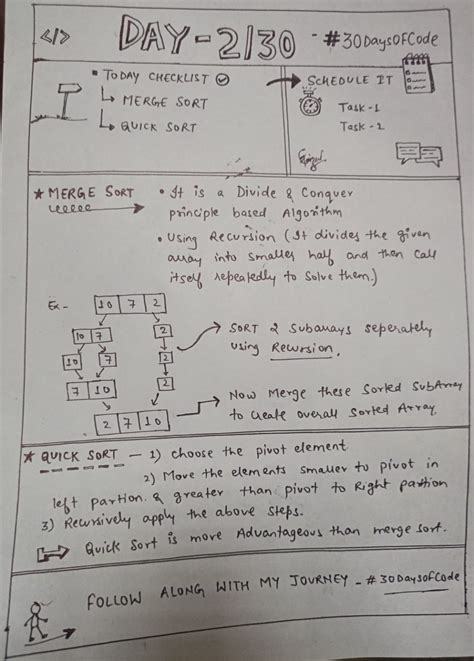 </>
DAY-2/30 - #30DaysOfCode
• TODAY CHECKLIST
↳ MERGE SORT
↳ QUICK SORT
SCHEDULE IT
Task-1
Task-2
★ MERGE SORT
• It is a Divide & Conquer
principle based Algorithm
• Using Recursion (It divides the given
array into smaller half and then call
itself repeatedly to solve them.)
Ex-
10 7 2
10 7 2
10 7 2
7 10 2
2 7 10
→ SORT 2 Subarrays seperately
using Recursion.
→ Now Merge these Sorted SubArray
to create overall Sorted Array.
★ QUICK SORT - 1) choose the pivot element
2) Move the elements smaller to pivot in
left partion & greater than pivot to Right partion
3) Recursively apply the above steps.
Quick Sort is more Advantageous than merge sort.
FOLLOW ALONG WITH MY JOURNEY - #30DaysofCode